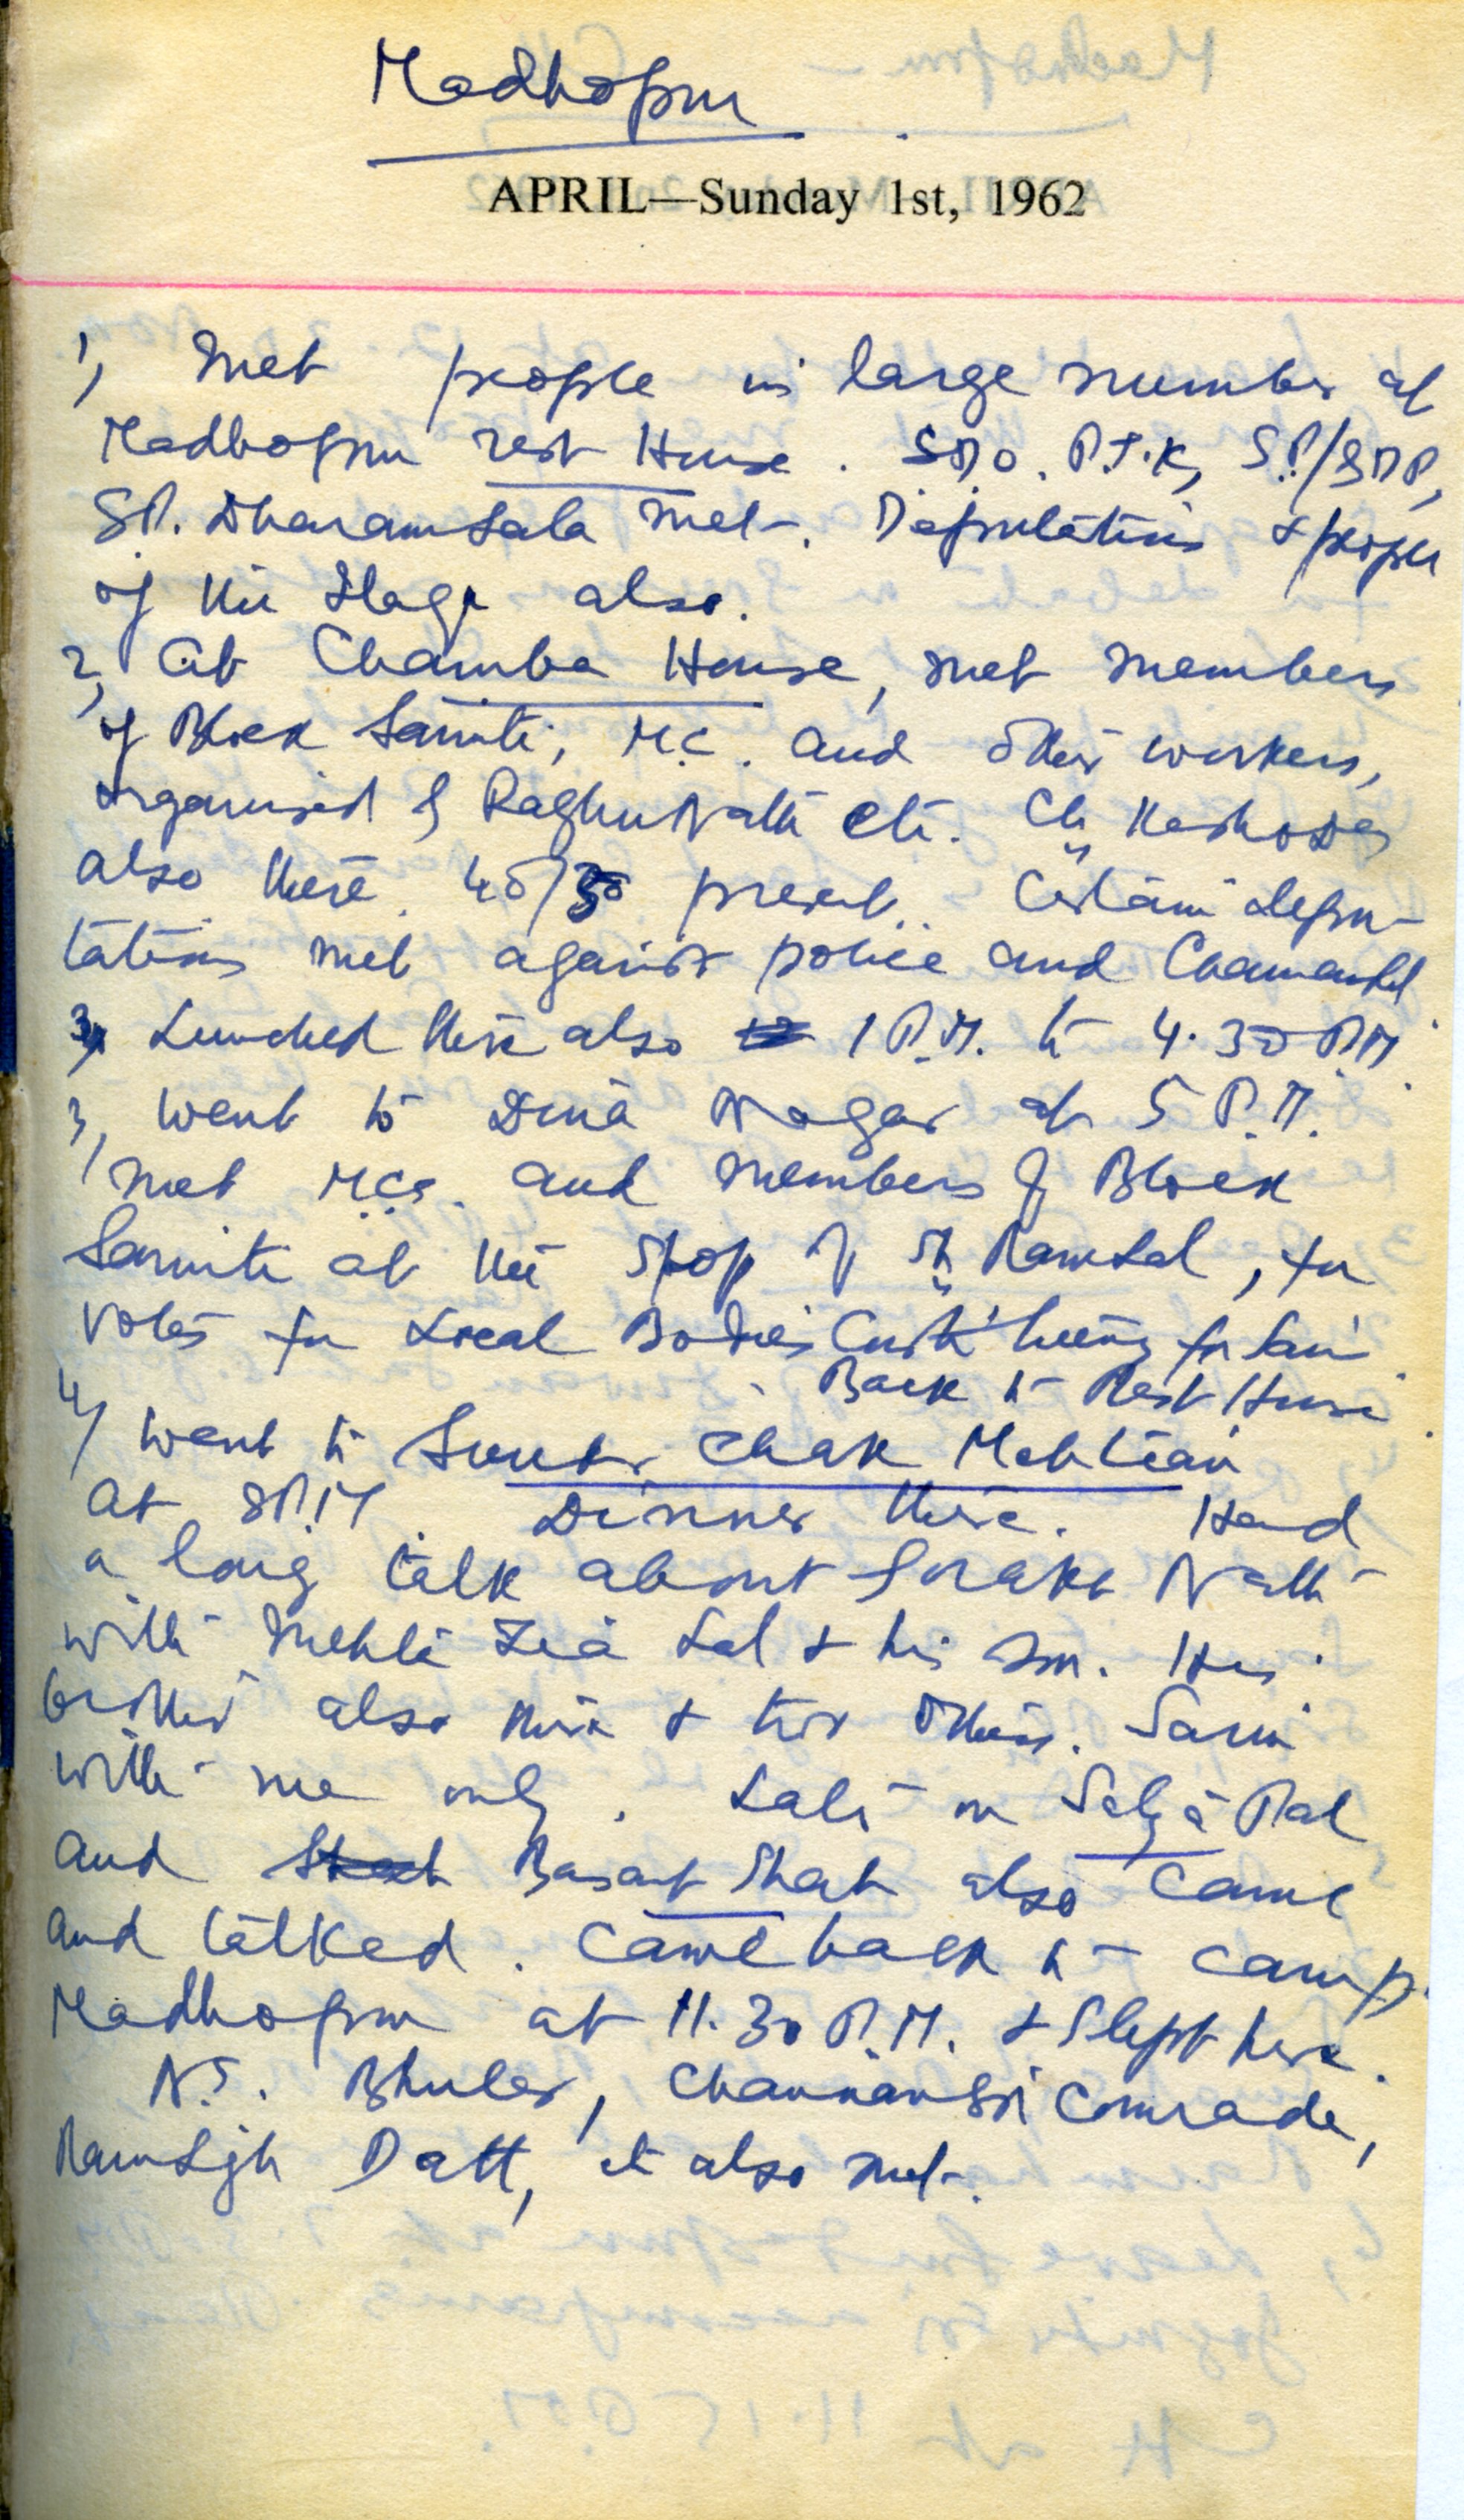 Madhopur
APRIL—Sunday 1st, 1962
1, Met people in large number at
Madhopur rest House. S.D.O. P.T.K,
S.P. Dharamsala met. Deputations & people
of the Ilaqa also.
2, At Chamba House, met members
of Block Samiti, M.C. and other workers,
organised by Raghu Nath etc. Ch
also there. 40/50 present. Certain depu-
tations met against police and Chamanlal
3, Lunched there also 1 P.M. to 4.30 P.M.
3, Went to Dina Nagar at 5 P.M.
Met M.Cs. and members of Block
Samiti at the shop of Sh Ram Lal, for
votes for Local Bodies for Saini.
Back to Rest House.
4, Went to Chak
at 8 P.M. Dinner there. Had
a long talk about Nath
with Mehta Lal & his son. His
brother also there & two others. Saini
with me only. Later on Satya Pal
and Basant also came
and talked. Came back to camp
Madhopur at 11.30 P.M. & slept here.
N.S. Comrade,
Datt, etc also met.